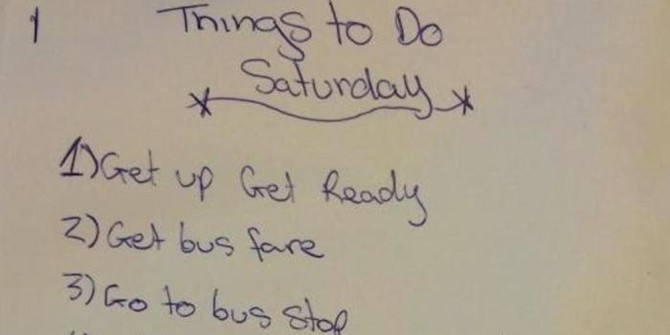 1
Things to Do
Saturday
1) Get up Get Ready
2) Get bus fare
3) Go to bus stop